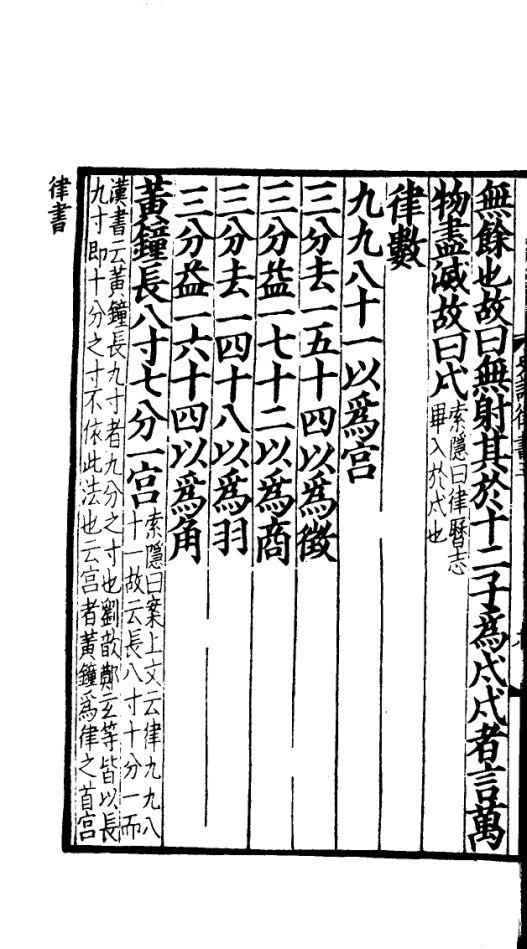 無餘也故曰無射其於十二子爲戌戌者言萬
物盡滅故曰戌索隱曰律曆志
畢入於戌也
律數
九九八十一以爲宮
三分去一五十四以爲徵
三分益一七十二以爲商
三分去一四十八以爲羽
三分益一六十四以爲角
黃鐘長八寸七分一宮索隱曰案上文云律九九八
十一故云長八寸十分一而
漢書云黃鐘長九寸者九分之寸也劉歆鄭玄等皆以長
九寸即十分之寸不依此法也云宮者黃鐘爲律之首宮
律書